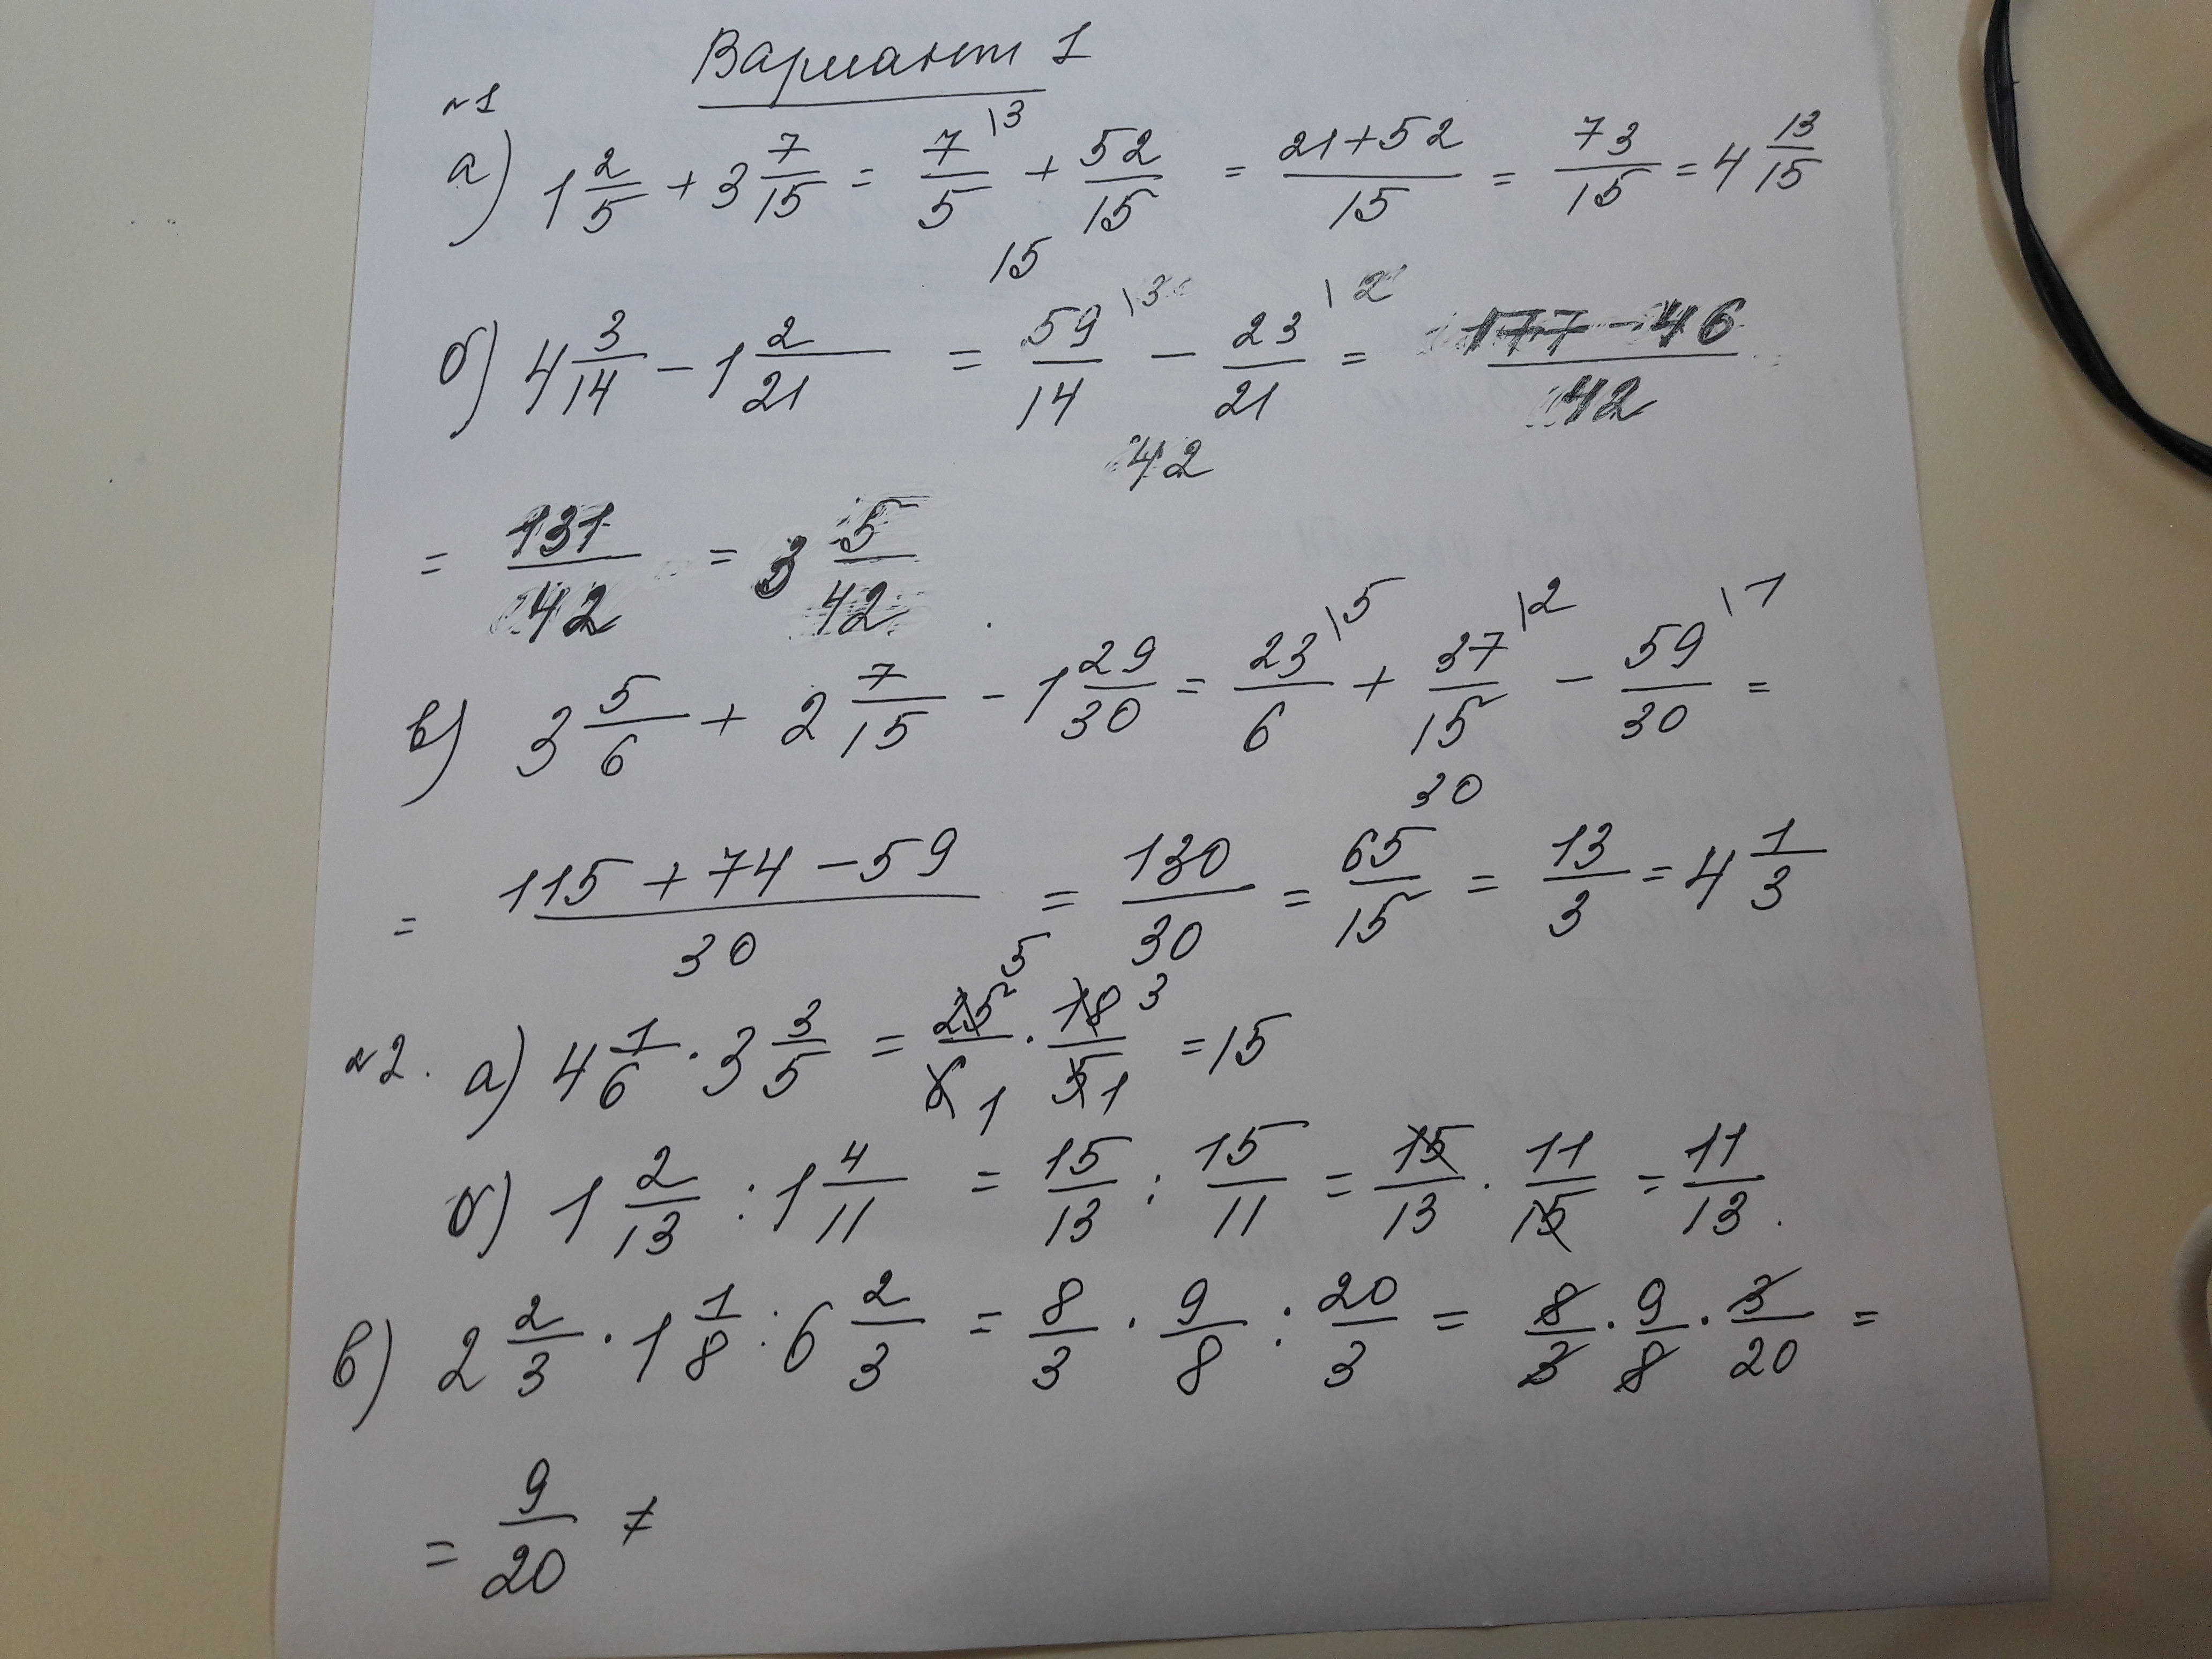 Вариант 1
№1
а) 1 2/5 + 3 7/15 = 7/5 \3 + 52/15 = 21+52/15 = 73/15 = 4 13/15
15
б) 4 3/14 - 1 2/21 = 59/14 \3 - 23/21 \2 = 177-46/42
42
= 131/42 = 3 5/42
в) 3 5/6 + 2 7/15 - 1 29/30 = 23/6 \5 + 37/15 \2 - 59/30 \1 =
30
= 115 + 74 - 59/30 = 130/30 = 65/15 = 13/3 = 4 1/3
№2. а) 4 1/6 · 3 3/5 = 25 5/6 1 · 18 3/5 1 = 15
б) 1 2/13 : 1 4/11 = 15/13 : 15/11 = 15/13 · 11/15 = 11/13.
в) 2 2/3 · 1 1/8 : 6 2/3 = 8/3 · 9/8 : 20/3 = 8/3 · 9/8 · 3/20 =
= 9/20